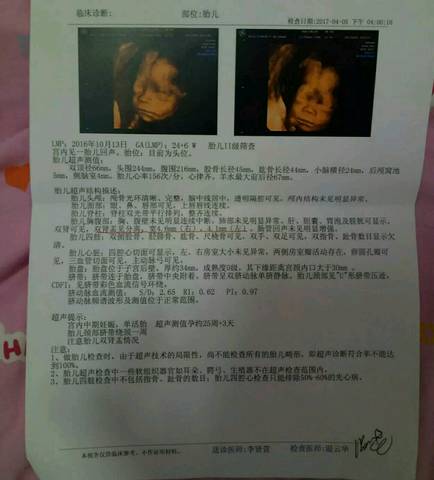 临床诊断:    部位:胎儿    检查日期:2017-04-05 下午 04:00:16
LMP: 2016年10月13日  GA(LMP): 24+6 W  胎儿II级筛查
宫内见一胎儿回声。胎位：目前为头位。
胎儿超声测值:
双顶径66mm, 头围244mm, 腹围216mm, 股骨长径45mm, 肱骨长径44mm, 小脑横径24mm, 后颅窝池
5mm, 侧脑室4mm。胎儿心率156次/分，心律齐。羊水最大前后径67mm。
胎儿超声结构描述:
胎儿头颅：颅骨光环清晰、完整，脑中线居中，透明隔腔可见，颅内结构未见明显异常。
胎儿面部：眼、鼻、唇部可见，上唇唇线连续。
胎儿脊柱：脊柱双光带平行排列，整齐连续。
胎儿胸腹部：胸、腹壁未见明显连续中断，肺部未见明显异常。肝、胆囊、胃泡及膀胱可显示。
双肾可见，双肾盂见分离，宽4.6mm（右），4.1mm（左）。肠管回声未见明显增强。
胎儿四肢：双侧肱骨、股骨、尺桡骨可见。双手、双足可见，双指骨、趾骨数目显示欠
清。
胎儿心脏：四腔心切面可显示，左、右房室大小未见异常，两侧房室瓣活动存在，卵圆孔瓣可
见。三血管切面可见，主动脉弓可见。
胎盘：胎盘位于子宫后壁，厚约34mm，成熟度0级，其下缘距离宫颈内口大于30mm。
脐带：脐带连于胎盘，脐带中央附着。脐带呈双脐动脉单脐静脉。胎儿颈部见"U"形脐带压迹。
CDFI：见脐带彩色血流信号环绕。
脐动脉血流测值:  S/D: 2.65  RI: 0.62  PI: 0.97
脐动脉频谱波形及测值位于正常范围。
超声提示:
宫内中期妊娠，单活胎  超声测值孕约25周+3天
胎儿颈部脐带绕颈一周
注意胎儿双肾盂情况
注意:
1、做胎儿检查时，由于超声技术的局限性，尚不能检查所有的胎儿畸形，即超声诊断符合率不能达
到100%。
2、胎儿超声检查中一些软组织器官如耳朵、腭弓、生殖器不在超声检查范围内。
3、胎儿四肢检查中不包括指骨、趾骨的数目；胎儿四腔心检查只能排除50%-60%的先心病。
本报告仅供临床参考，不作证明材料。  送诊医师:李贤萱  检查医师: